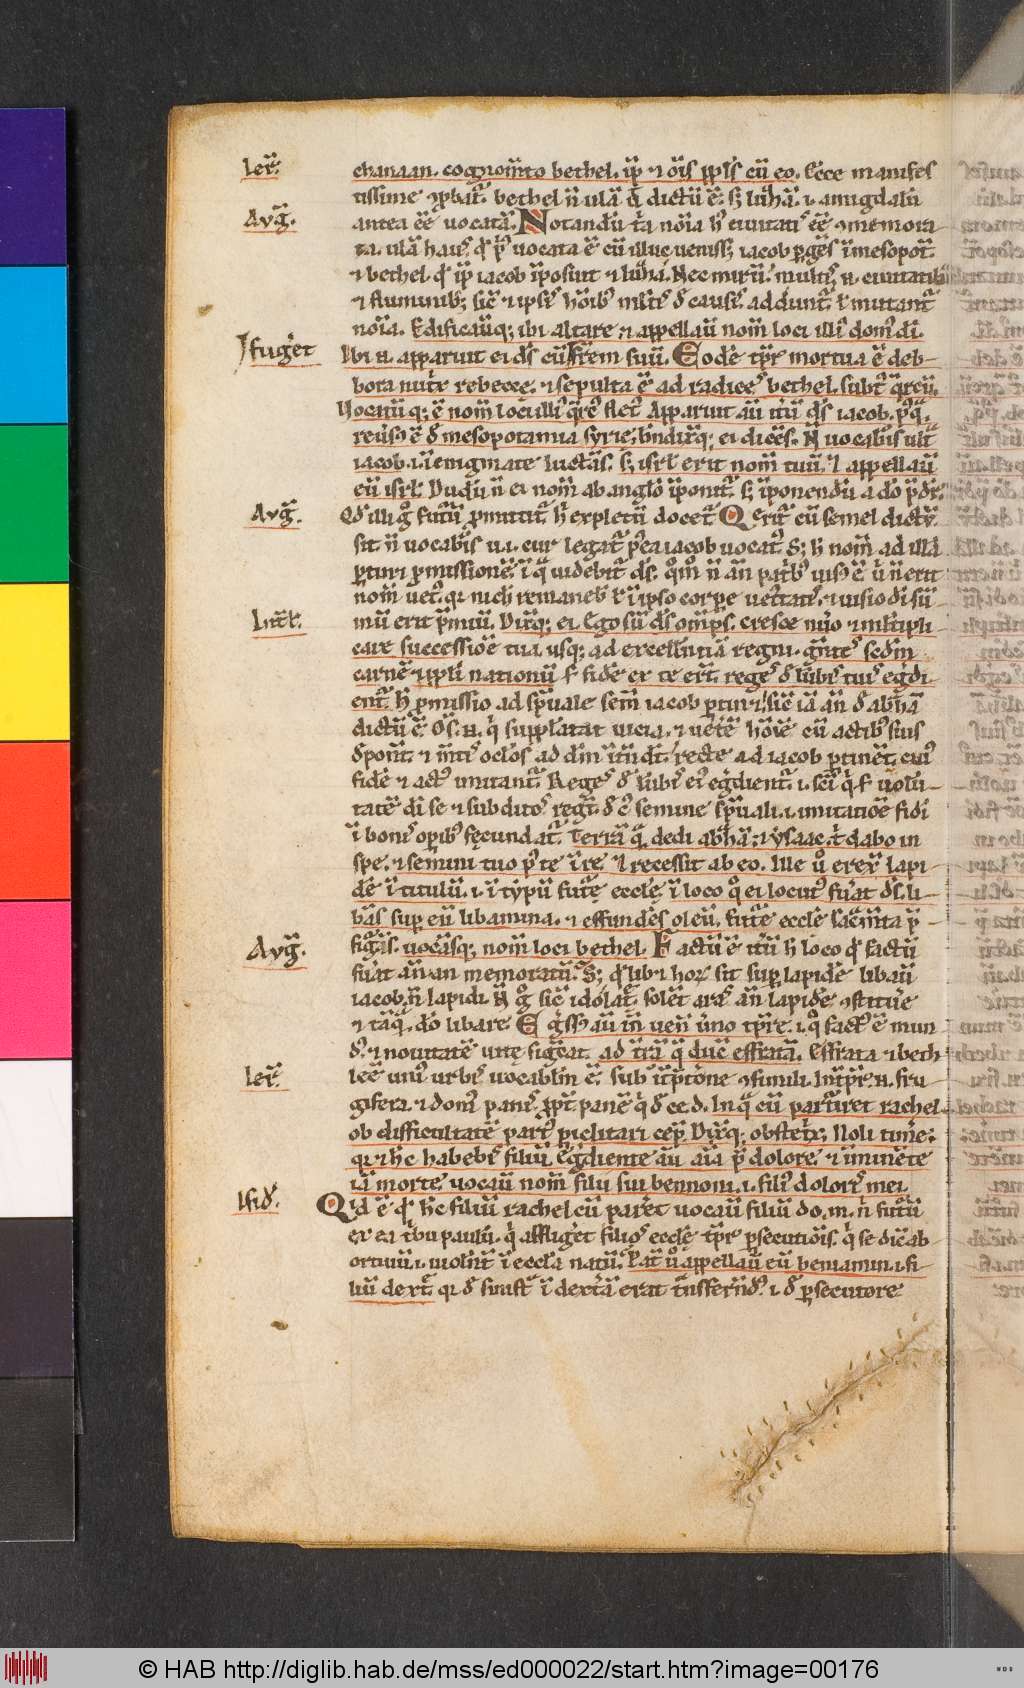 Ier̄.
chanaan. cognom̄to bethel. ip̄ ⁊ om̄s ppl's cū eo. Ecce manifes
tissime ꝓbat᷑. bethel n̄ ulā dictū ē. s; luzā. i. amugdalū
Avg̅.
antea eē uocatā. Notandū nōia h' ciuitatis eē ꝯmemora
ta. ulā uocata ē cū illuc uenisset iacob ꝑgēs ī mesopot̄.
⁊ bethel. ip̄ iacob īposuit ⁊ Nec mirū. multis n. ciuitatib;
⁊ fluminib; sic ⁊ ip̄is adduntur mutant᷑
nōia. Edificauitq; ibi altare ⁊ appellauit nom̄ loci illi' dom' dī.
fug̅et
Ibi n. apparuit ei ds̄ cū fr̄em suū. Eodē tp̄r mortua ē deb-
bora nutx̄ rebecce. ⁊ sepulta ē ad radices bethel. subt' q̄rcū.
Uocatūq; ē nom̄ loci illi' q̄rc' flet'. Apparuit aū itū ds̄ iacob. p'q̄
reūsꝰ ē d' mesopotamia syrie. bn̄dix̄q; ei dicēs. N̄ uocab'is ult᷑
iacob. i. ī enigmate luctās. s; isrl̄ erit nom̄ tuū. ⁊ appellauit
eū isrl̄. Dudū n̄ ei nom̄ ab anglō īponit᷑. s; īponendū a dō p̄dr̄.
Avg̅.
Qd̄ illi g° futū ꝓmittit᷑. h' expletū docet᷑. Querit᷑ cū semel dictū
sit n̄ uocab'is iacob uocat᷑. S; h' nom̄ ad illā
ꝑtinet ꝓmissionē. ī q̄ uidebit᷑ ds̄. qom̄ n̄ an̄ patrib' uisꝰ ē. ū n̄ erit
nom̄ uet'. qi nich' remaneb' ī ipso corpe uet'tatis. ⁊ uisio dī sū
Int̄l'.
mū erit p̄miū. Dix̄q; ei. Ego sū ds̄ om̄ps. cresce ⁊ multipli
care successiōe tua. usq; ad excellentiā regni. sc'dm
carnē ⁊ ppl'i nationū fidē ex te er̄t. reges d' lūbis tuis eg̅di
ent᷑. h' ꝓmissio ad sp̄uale sem̄ iacob ꝑtinet. sic iā an̄ d' abhā
dictū ē. Om̄s n. q' supplantat uicia. ⁊ uet'ē hōiem cū actib' suis
dponit. ⁊ oc'los ad dm̄ recte ad iacob ꝑtinet. cui'
fidē ⁊ act' imitant᷑. Reges d' lūbis ei' eg̅dient᷑. i. sci q' uolū-
tatē dī se ⁊ subditos reg̅t. d' semine sp̄uali. i. imitatiōe fidei
ī bonis opib' fecundat᷑. Terrā q̄ dedi abhā. ⁊ ysaac. t' dabo in
spe. ⁊ semini tuo p' te ī re. ⁊ recessit ab eo. Ille ū erex' lapi-
dē ī titulū. i. ī typū fut'e eccl'e ī loco q° ei locut' fuat ds̄. li-
bās sup eū libamina. ⁊ effundēs oleū. fut'e eccl'e sac̄mta p̄-
Avg̅.
fig̅ās. uocāsq; nom̄ loci bethel. Factū ē itū h' loco q' factū
fuat an̄ an memoratū. S; sit sup lapidē libauit
iacob. n̄ lapidi. N̄ g° sic idōlat' solēt aras an̄ lapidē ꝯstitu'e
⁊ tāq̄ dō libare. Eg̅ssꝰ aū uen̄ u'no tp̄re. i. q° factꝰ ē mun
dꝰ. ⁊ nouitatē uite sig̅cat. ad t'rā q̄ duc̄ effratā. Effrata ⁊ beth-
Ier̄.
leē uni' urbis uocablm̄ ē. sub' ꝯsimili. Int'p̄r n. fru-
gifera. ⁊ domꝰ panis. ꝓpt' panē q' d' ce. d. In q̄ cū part'iret rachel.
ob difficultatē partꝰ piclitari cep'. Dix̄q; obstetx̄. Noli tim'e:
qi ⁊ h'c habebis filiū. Eg̅diente aū aīa p̄ dolore. ⁊ īminēte
iā morte. uocauit nom̄ filii sui bennoni. i. filiꝰ doloris mei.
Isid'.
Qid ē q' h'c filiū rachel cū paret uocauit filiū do. m. n' futū
ex ea tbu paulū. q' affligēt filios eccl'e tp̄r ꝑsecutiōis. q' se dic̄ ab
ortiuū. ī eccl'a natū. Pat' ū appellauit eū beniamin. i. fi-
liū dext'. qi d' sinist' ī dext'ā erat t'nsferēdꝰ. i. d' ꝑsecutore
© HAB http://diglib.hab.de/mss/ed000022/start.htm?image=00176